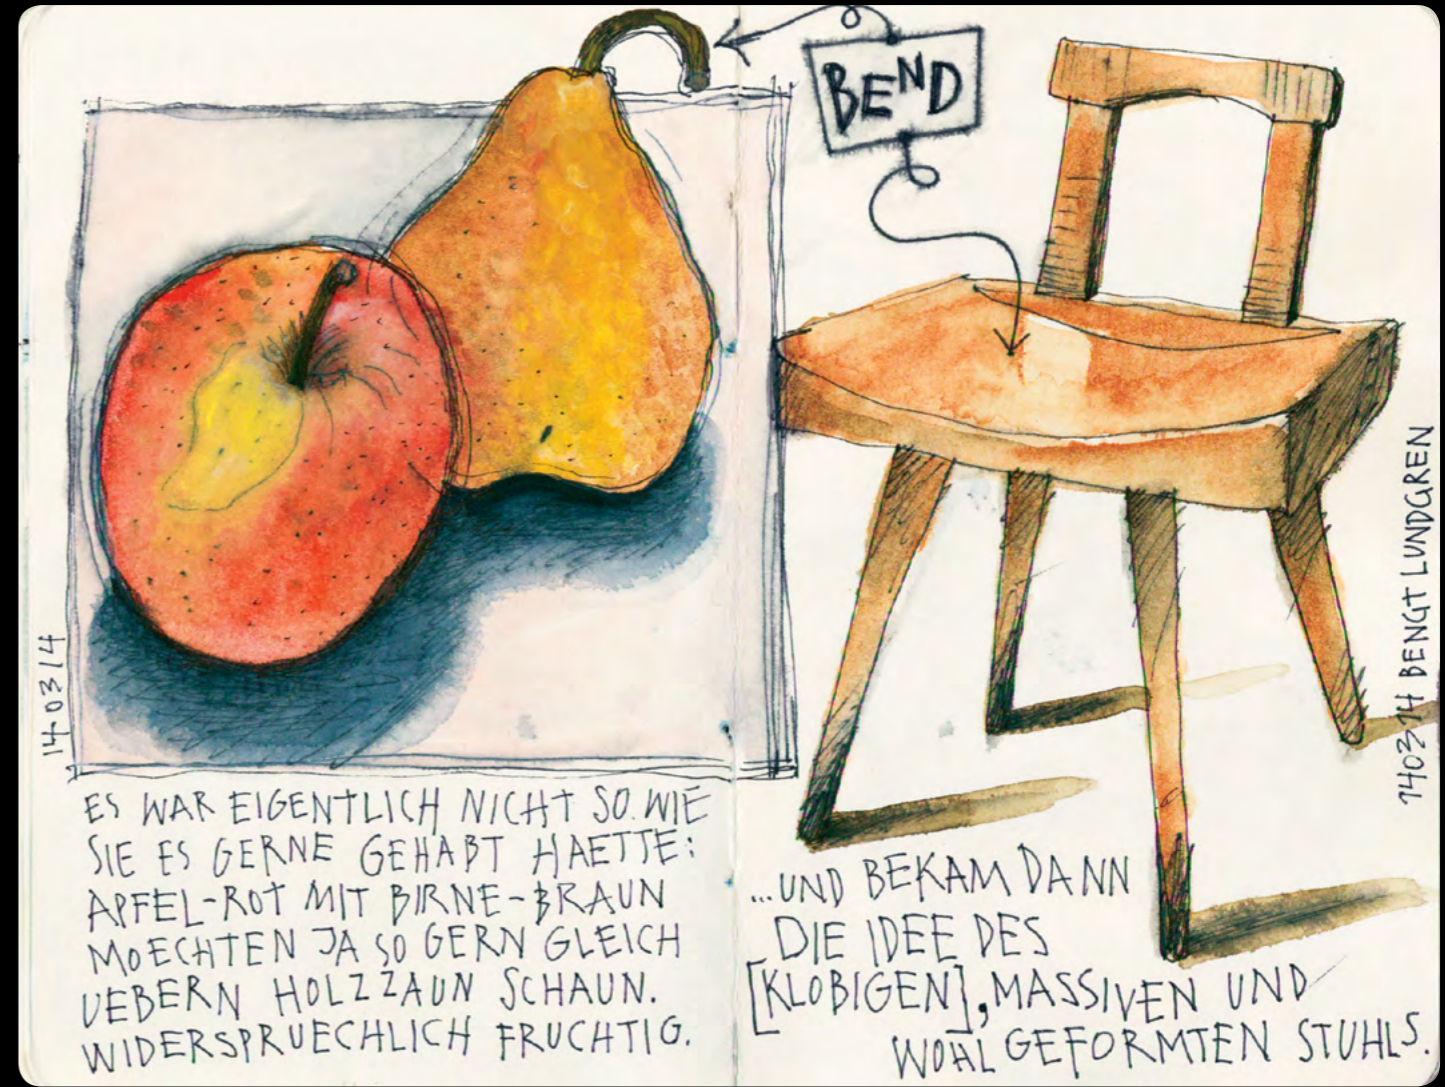 BEND
14-03 14
ES WAR EIGENTLICH NICHT SO. WIE
SIE ES GERNE GEHABT HAETTE:
APFEL-ROT MIT BIRNE-BRAUN
MOECHTEN JA SO GERN GLEICH
UEBERN HOLZZAUN SCHAUN.
WIDERSPRUECHLICH FRUCHTIG.
...UND BEKAM DANN
DIE IDEE DES
[KLOBIGEN], MASSIVEN UND
WOHLGEFORMTEN STUHLS.
140314 BENGT LUNDGREN